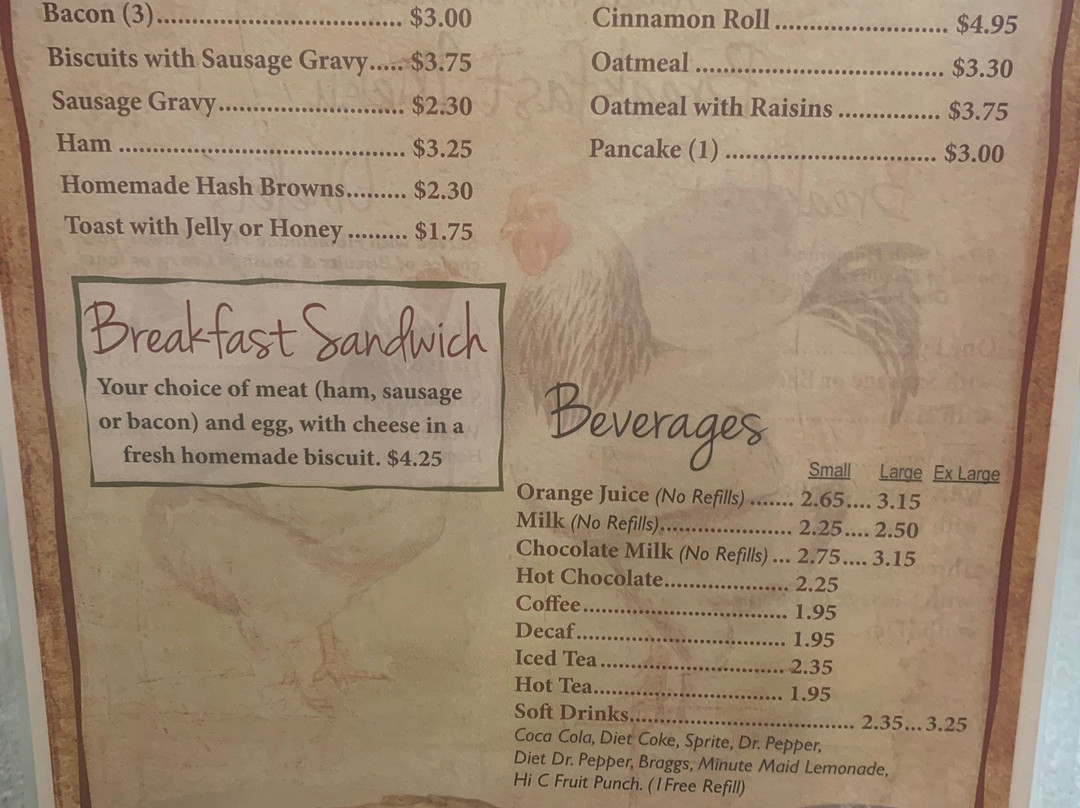 Bacon (3)................................... $3.00
Biscuits with Sausage Gravy..... $3.75
Sausage Gravy........................... $2.30
Ham ......................................... $3.25
Homemade Hash Browns......... $2.30
Toast with Jelly or Honey ......... $1.75
Cinnamon Roll ......................... $4.95
Oatmeal .................................... $3.30
Oatmeal with Raisins ............... $3.75
Pancake (1) ............................... $3.00
Breakfast Sandwich
Your choice of meat (ham, sausage
or bacon) and egg, with cheese in a
fresh homemade biscuit. $4.25
Beverages
Small Large Ex Large
Orange Juice (No Refills) ....... 2.65.... 3.15
Milk (No Refills)..................... 2.25.... 2.50
Chocolate Milk (No Refills) ... 2.75.... 3.15
Hot Chocolate.................... 2.25
Coffee................................. 1.95
Decaf.................................. 1.95
Iced Tea.............................. 2.35
Hot Tea.............................. 1.95
Soft Drinks..................................... 2.35...3.25
Coca Cola, Diet Coke, Sprite, Dr. Pepper,
Diet Dr. Pepper, Braggs, Minute Maid Lemonade,
Hi C Fruit Punch. (1 Free Refill)